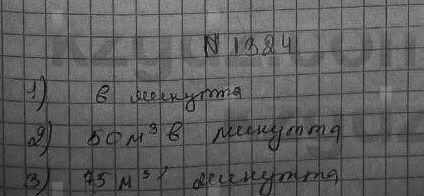 N 1324
1) в минутта
2) 50 м³ в минутта
3) 75 м³ минутта